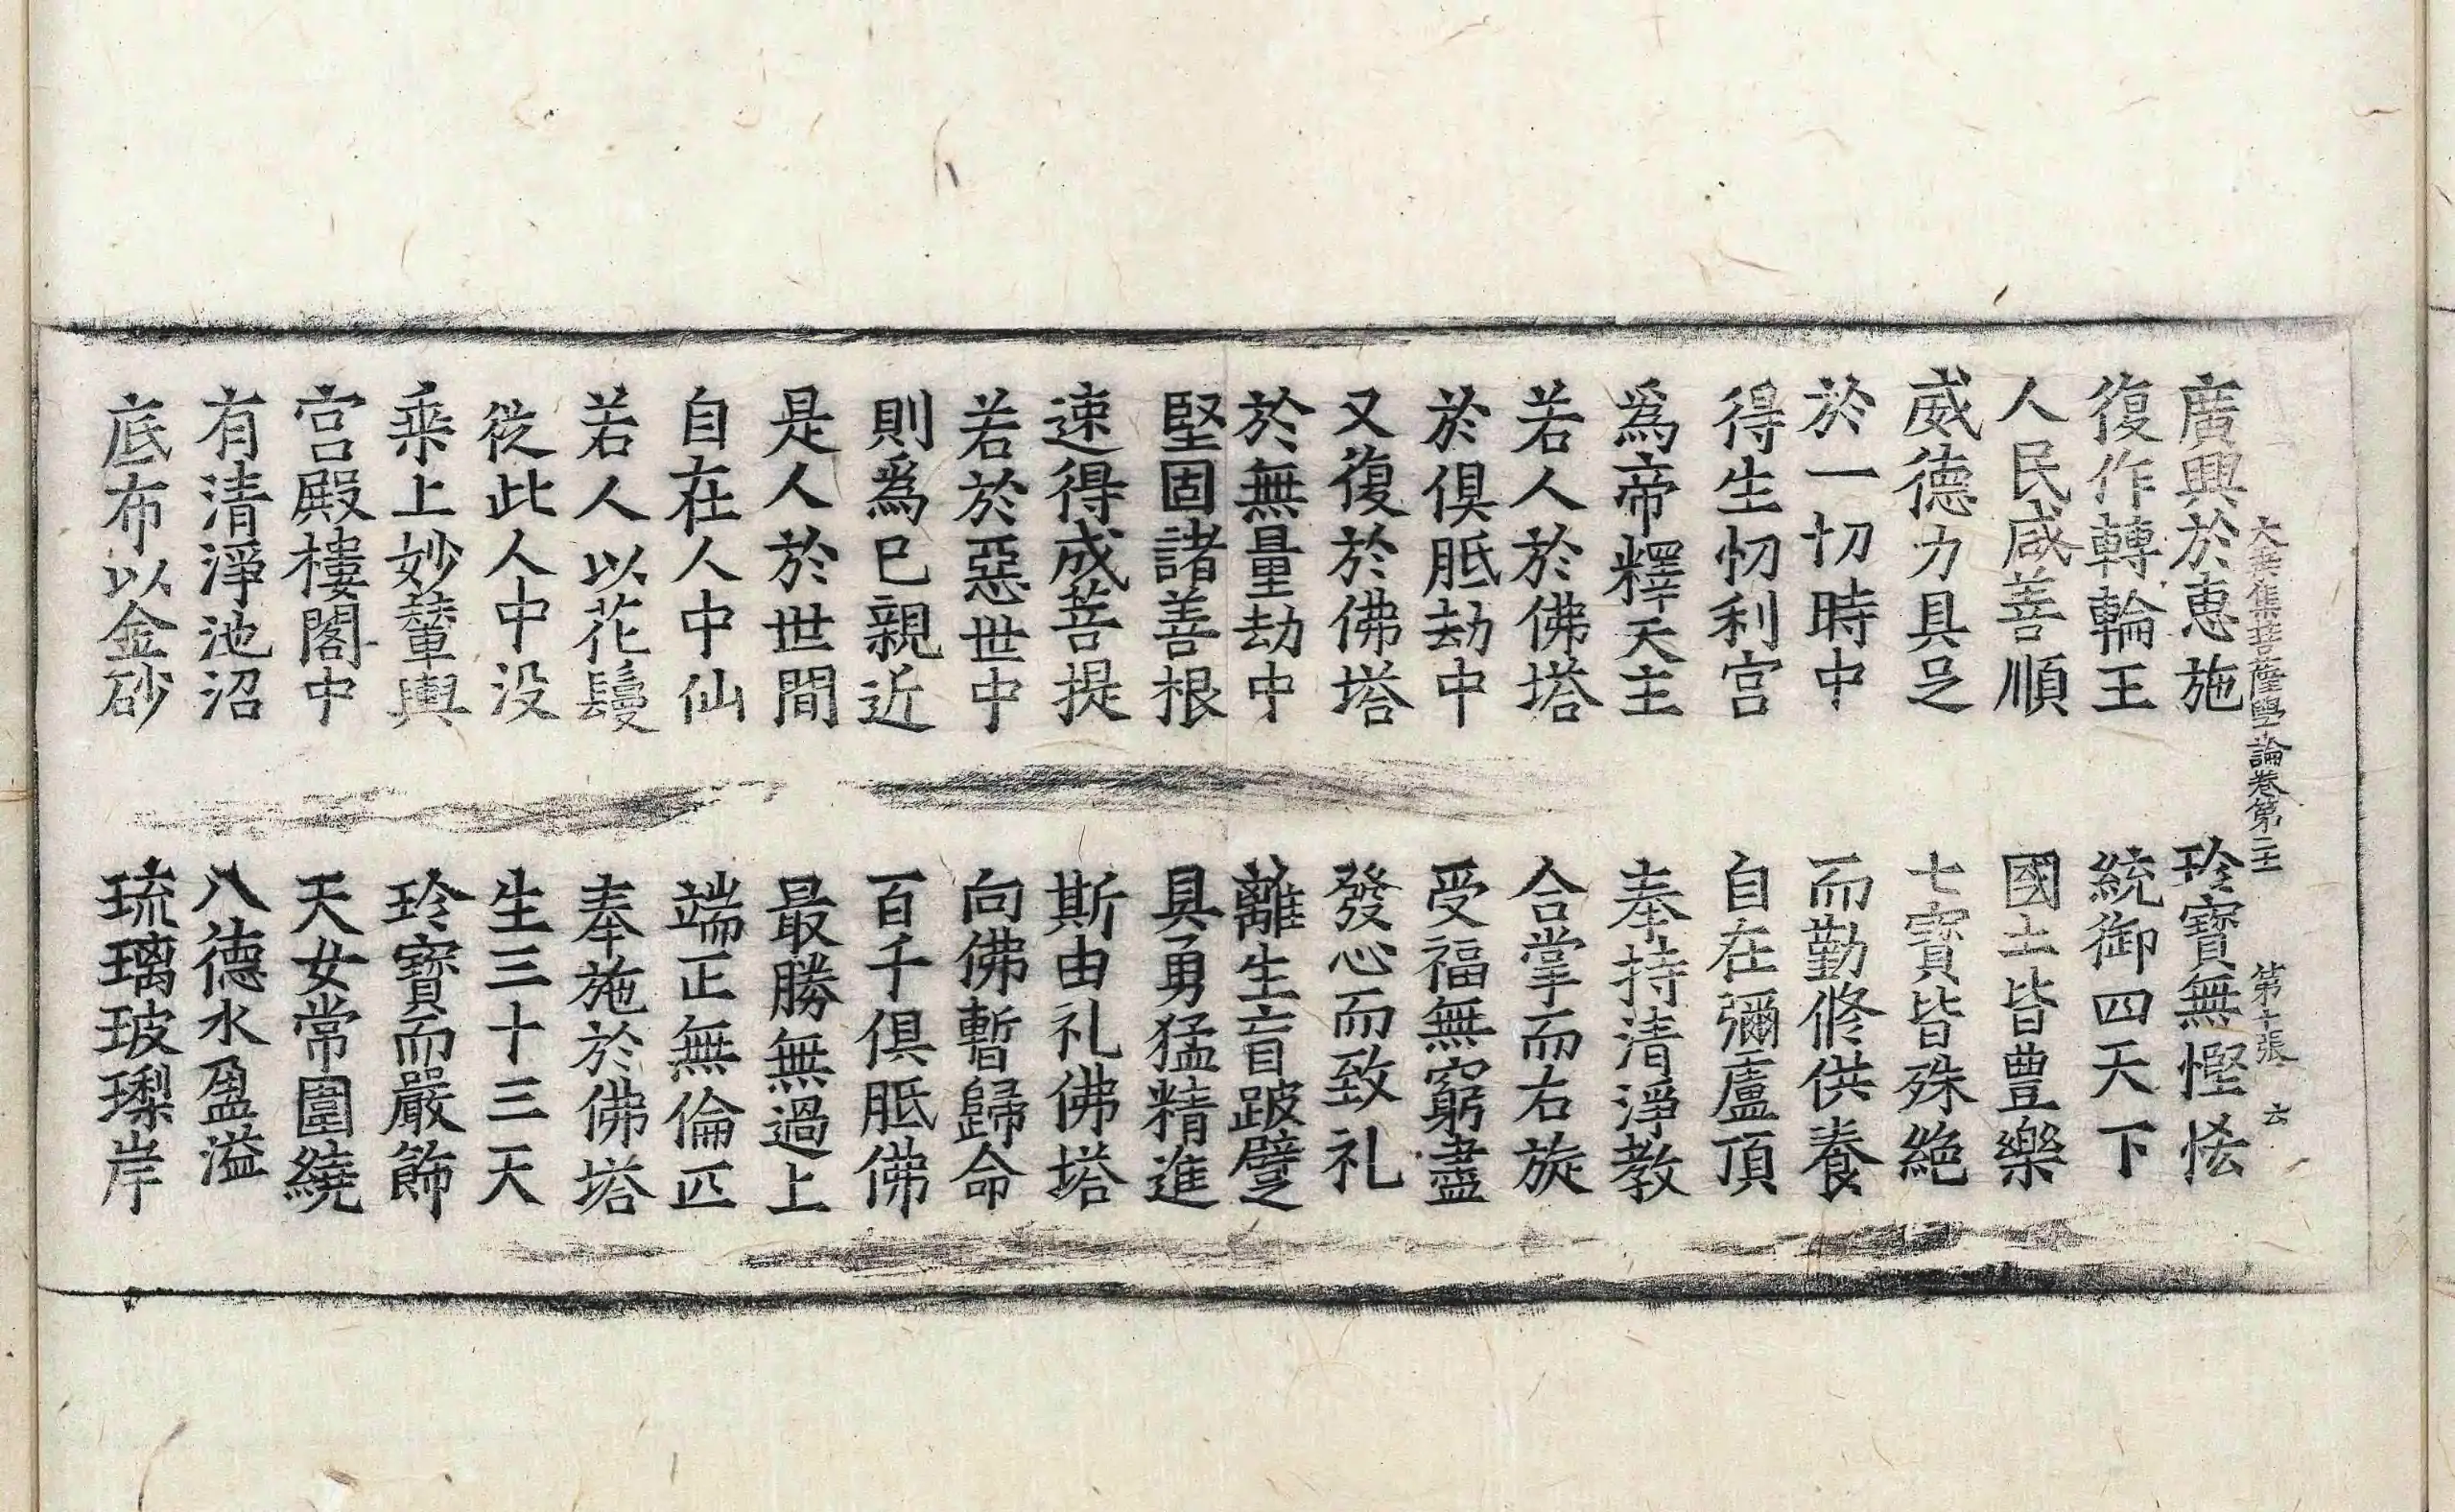 大乘集菩薩學論卷第二十 第十張 六
廣興於恵施 玲寶無慳怯
復作轉輪王 統御四天下
人民咸善順 國土皆豊樂
威德力具足 七寶皆殊絶
於一切時中 而勤修供養
得生忉利宫 自在彌盧頂
爲帝釋天主 奉持清淨教
若人於佛塔 合掌而右旋
於俱胝劫中 受福無窮盡
又復於佛塔 發心而致礼
於無量劫中 離生盲跛躄
堅固諸善根 具勇猛精進
速得成菩提 斯由礼佛塔
若於惡世中 向佛暫歸命
則爲已親近 百千俱胝佛
是人於世間 最勝無過上
自在人中仙 端正無倫匹
若人以花鬘 奉施於佛塔
從此人中没 生三十三天
乘上妙輦輿 玲寶而嚴飾
宫殿樓閣中 天女常圍繞
有清淨池沼 八德水盈溢
底布以金砂 琉璃玻瓈岸